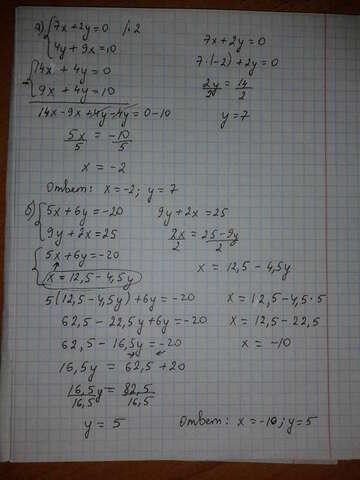 а) {7x+2y=0 |·2
{4y+9x=10
{14x+4y=0
{9x+4y=10
14x-9x+4y-4y=0-10
5x/5 = -10/5
x = -2
7x+2y=0
7·(-2)+2y=0
2y/2 = 14/2
y=7
Ответ: x=-2; y=7
б) {5x+6y=-20
{9y+2x=25
{5x+6y=-20
{x=12,5-4,5y
5(12,5-4,5y)+6y=-20
62,5-22,5y+6y=-20
62,5-16,5y=-20
16,5y = 62,5+20
16,5y/16,5 = 82,5/16,5
y = 5
9y+2x=25
2x/2 = 25-9y/2
x = 12,5-4,5y
x=12,5-4,5·5
x=12,5-22,5
x = -10
Ответ: x=-10; y=5